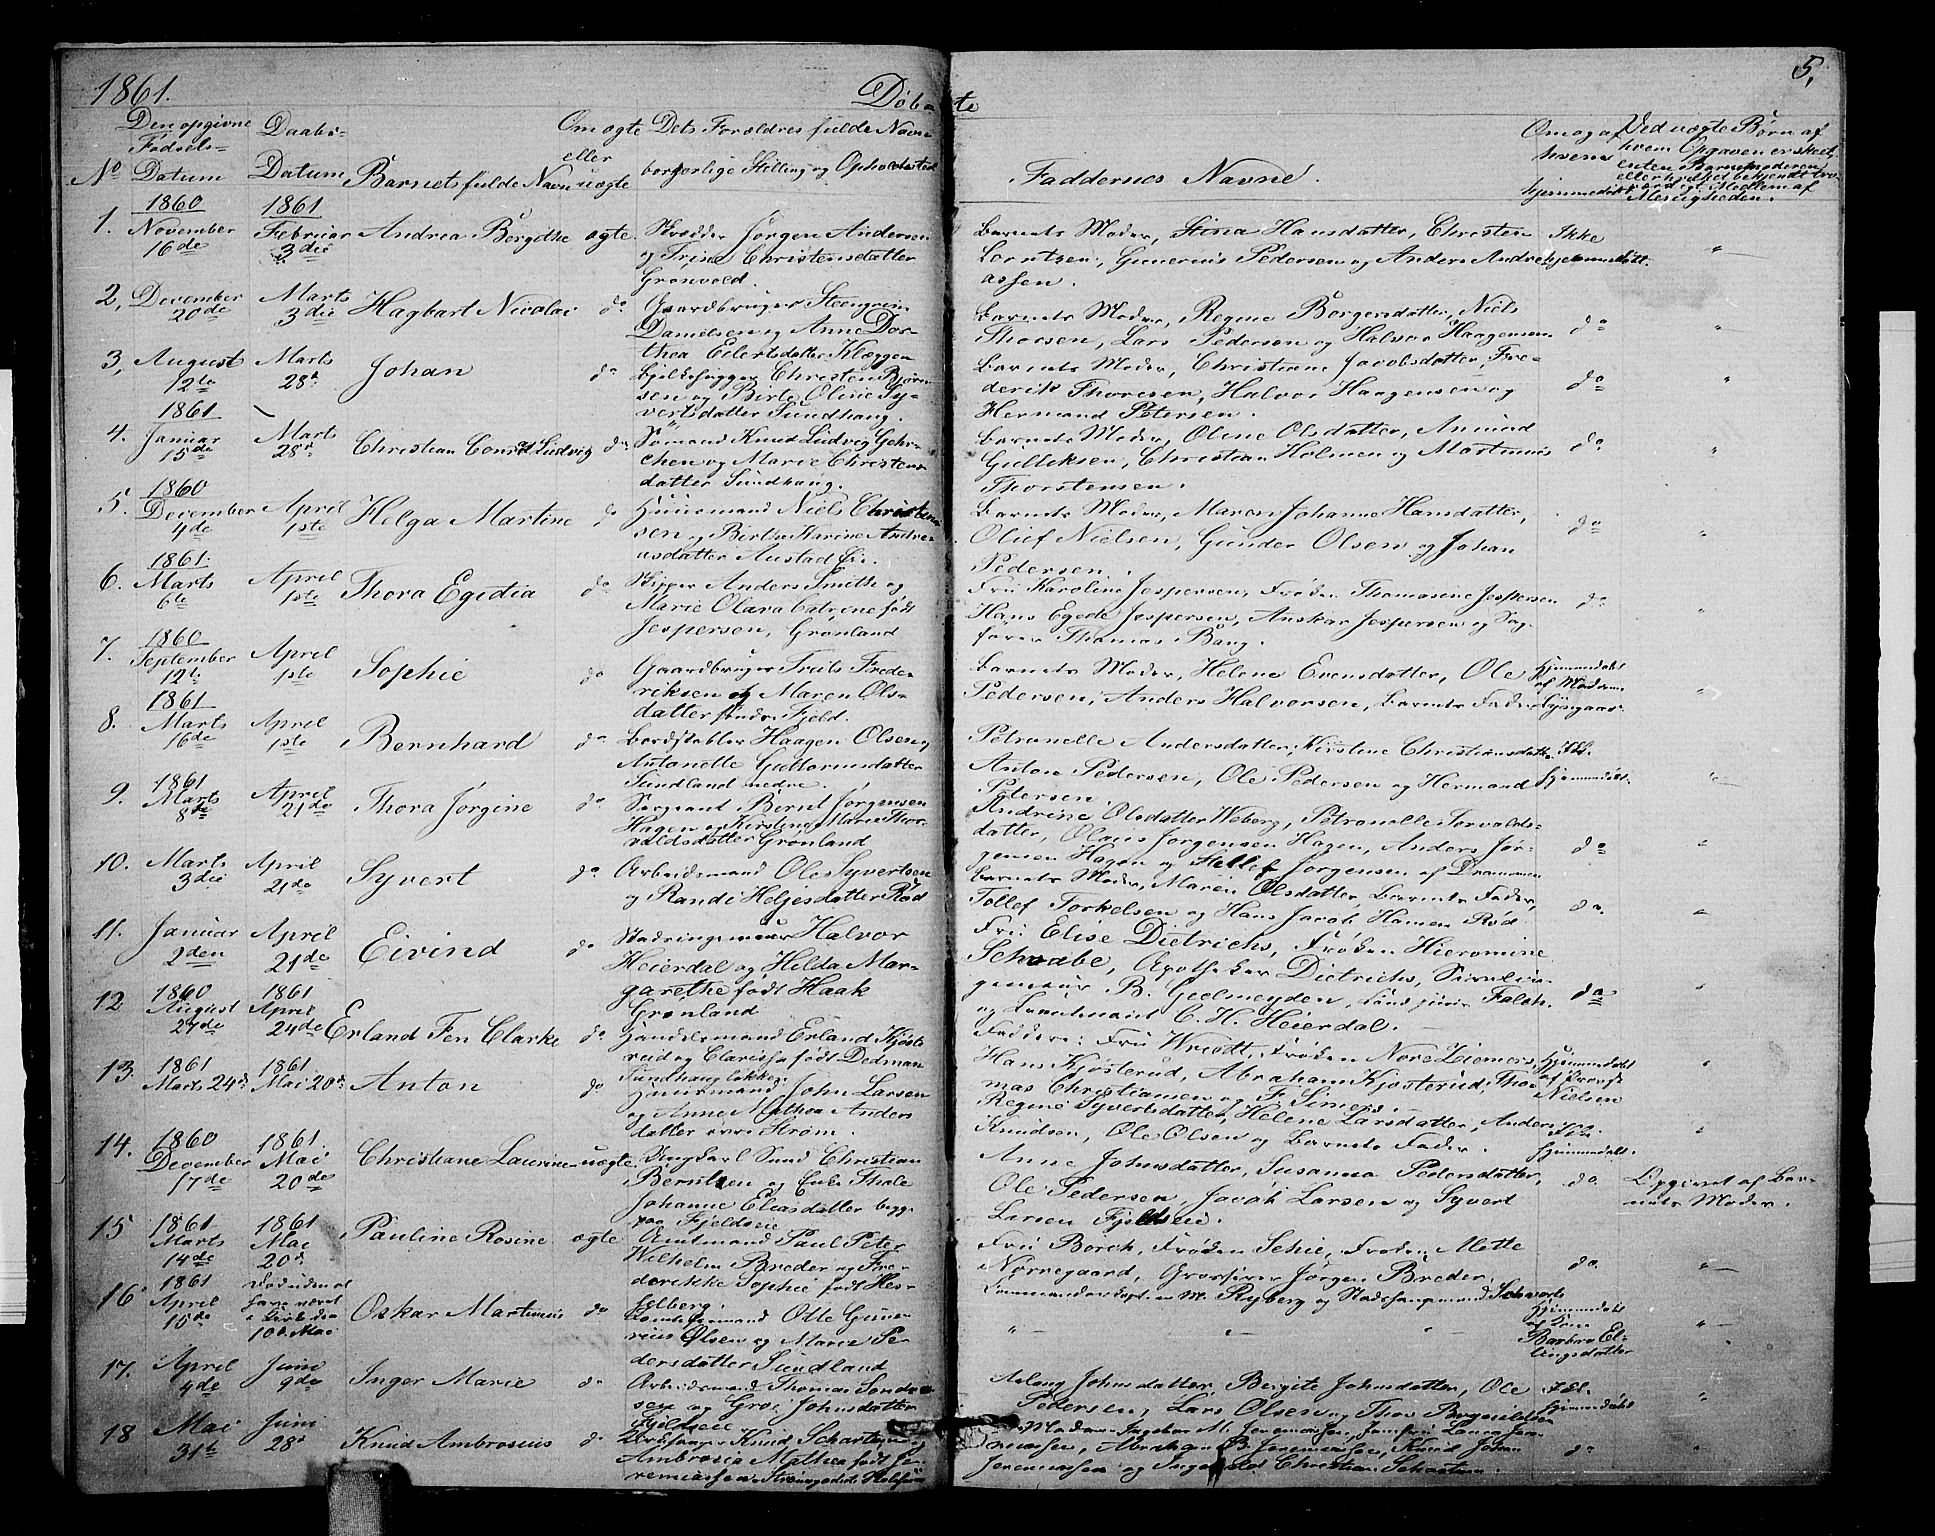 1861.
Døbte
5,
Den opgivne Fødsels=
Daabs=
Om ægte eller uægte
Dets Forældres fulde Navne
borgerlige Stilling og Opholdssted
No Datum Datum Barnets fulde Navn
Faddernes Navne.
Om og af hvem hjemmedøbt
Ved uægte Børn af hvem Opgaven er skeet, enten Barnemoderen eller hvilket bekjendt troværdigt Medlem af Menigheden.
1. 1860 November 16de
1861 Februar 3die
Andrea Børgithe ægte.
Skrædder Jørgen Andersen
og Trine Christensdatter
Grønvold.
Barnets Moder, Stina Hansdatter, Christen
Lorntzen, Gunerius Pedersen og Anders Andre-
assen.
Ikke hjemmedøbt.
2, December 20de
Marts 3die
Hagbart Nicolai do
Gaardbruger Steengrim
Danielsen og Anne Dor-
thea Eilertsdatter Kløggen
Barnets Moder, Regine Børgersdatter, Niels
Thorsen, Lars Pedersen og Halvor Haagensen
do
3, August 12te
Marts 28de
Johan do
Bjelkehugger Christen Bjørn-
sen og Birte Oline Sy-
vertsdatter Sundhaug.
Barnets Moder, Christiane Jacobsdatter, Fre-
derik Thoresen, Halvor Haagensen og
Hermand Petersen.
do
4. 1861 Januar 15de
Marts 28de
Christian Conrad Ludvig do
Sømand Knud Ludvig Gehr-
chen og Marie Christens-
datter Sundhaug.
Barnets Moder, Oline Olsdatter, Amund
Gulliksen, Christian Holmen og Martinius
Thorstensen.
do
5. 1860 December 4de
April 1ste
Helga Martine do
Huusmand Niels Christen-
sen og Birthe Karine Andre-
asdatter Austad Ei.
Barnets Moder, Maren Johanne Hansdatter,
Oluf Nielsen, Gunder Olsen og Johan
Pedersen.
do
6. 1861. Marts 6te
April 1ste
Thora Egidia do
Skipper Anders Smith og
Marie Olava Catrine født
Jespersen, Grønland
Fru Karoline Jespersen, Frøken Thomasine Jespersen
Hans Egede Jespersen, Anskar Jespersen og Sag-
fører Thomas Bang.
do
7. 1860 September 12te
April 1ste
Sophie do
Gaardbruger Truls Frede-
riksen og Maren Ols-
datter søndre Fjeld.
Barnets Moder, Helene Evensdatter, Ole
Pedersen, Anders Halvorsen, Barnets Fader
Hjemmedøbt af Madame Lysgaar
8. 1861 Marts 16de
April 1ste
Bernhard do
Bordstabler Haagen Olsen,
Antonette Guttormsdatter
Sundland nedre.
Petronelle Andersdatter, Kirstine Christiansdatter
Anton Pedersen, Ole Pedersen og Hermand
Petersen.
Ikke hjemmedøbt.
9. 1861 Marts 8de
April 21de
Thora Jørgine do
Sergeant Bernt Jørgensen
Hagen og Kirstine Marie Thor-
valdsdatter Grønland
Andrine Olsdatter Weberg, Petronelle Torvalds-
datter, Olaus Jørgensen Hagen, Anders Jør-
gensen Hagen og Stellef Jørgensen af Drammen
do
10. Marts 3die
April 21de
Syvert do
Arbeidsmand Ole Syvertsen
og Randi Heljesdatter Rød
Barnets Moder, Maren Olsdatter, Barnets Fader,
Tollef Torkelsen og Hans Jacob Hansen Rød
do.
11. Januar 2den
April 21de
Eivind do
Stadsingenieur Halvor
Heierdal og Hilda Mar-
garethe født Haak
Grønland
Fru Elise Dietrichs, Frøken Hieronimine
Schwabe, Apotheker Dietrichs, Sivilin-
genieur B. Geelmeyden,
og Lieutenant C. H. Heierdal.
do
12 1860 August 27de
1861 April 24de
Erland Fen Clarke do
Handelsmand Erland Kjøste-
rud og Clarissa født Dedman
Sundhaugløkken
Faddere: Fru Wriedt, Frøken Nore Ziemers,
Hans Kjøsterud, Abraham Kjøsterud, Tho-
mas Christiansen og F. Simers.
Hjemmedøbt af Provst Nielsen
13. 1861 Marts 24de
1861 Mai 20de
Anton do
Huusmand John Larsen
og Anne Mathea Anders
datter øvre Strøm.
Regine Syvertsdatter, Helene Larsdatter, Anders
Knudsen, Ole Olsen og Barnets Fader.
Ikke hjemmedøbt.
14. 1860 December 17de
1861. Mai 20de
Christiane Laurine uægte.
Ungkarl Smed Christian
Berntsen og Enke Thale
Johanne Eliasdatter begge
paa Fjeldseie
Anne Johnsdatter, Susanna Pedersdatter,
Ole Pedersen, Jacob Larsen og Syvert
Larsen Fjeldseie.
do
Opgivet af Bar-
nets Moder.
15 1861 Marts 14de
1861 Mai 20de
Pauline Rosine ægte
Amtmand Paul Peter
Wilhelm Breder og Fre-
derikke Sophie født Hes-
selberg.
Fru Borch, Frøken Schie, Frøken Mette
Nørregaard, Grosserer Jørgen Breder,
M. Ryberg og Stadshauptmand Schwartz
do
16. 1861 April 15de
10de Mai
Oskar Martinius do
Otto Gune-
rius Olsen og Maren Pe-
dersdatter Sundland
Hjemmedøbt af Kone Barbro El-
lingsdatter
17. April 4de
Juni 9de
Inger Marie do
Arbeidsmand Thomas
sen og Groe Johnsdatter
Fjeldseie
Aslaug Johnsdatter, Bergite Johnsdatter, Ole
Pedersen, Lars Olsen og Thor
Ikke hjemmedøbt
18 Mai 31te
Juni 28de
Knud Ambrosius do
Knud Schartum
Ambrosia Mathea født Je-
remiassen
Moder, Ingeborg M. Jeremiassen,
Abraham B. Jeremiassen, Knud Johan
Jeremiassen og Ingevald Christian Schartum.
do